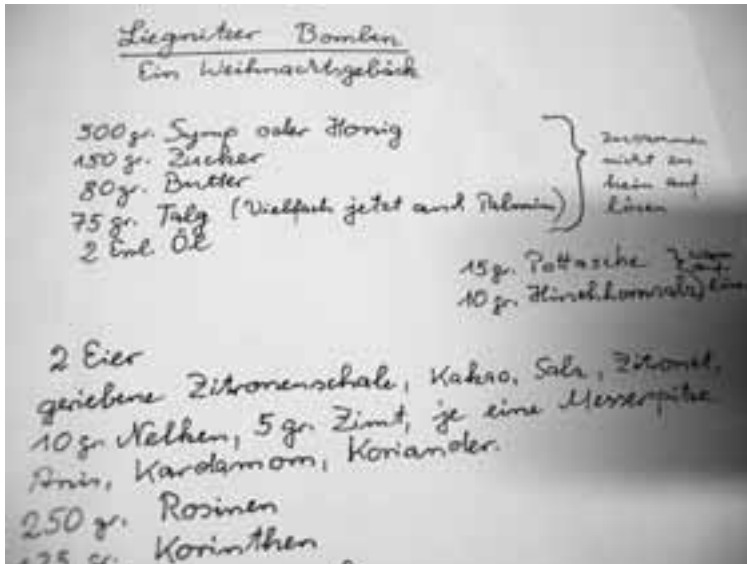 Liegnitzer Bomben
Ein Weihnachtsgebäck
500 gr. Syrup oder Honig
150 gr. Zucker
80 gr. Butter
75 gr. Talg (Vielfach jetzt auch Palmin)
2 Eml. Öl
zusammen
nicht zu
hein auf
lösen
15 gr. Pottasche
10 gr. Hirschhornsalz
2 Eier
geriebene Zitronenschale, Kakao, Salz, Zitronat,
10 gr. Nelken, 5 gr. Zimt, je eine Messerspitze
Anis, Kardamom, Koriander.
250 gr. Rosinen
125 gr. Korinthen